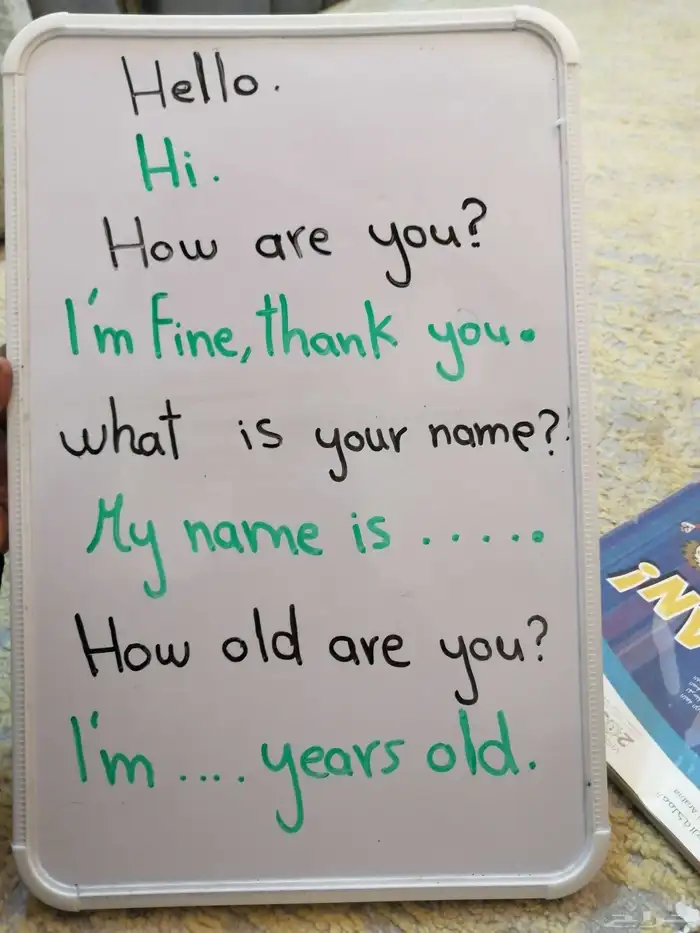 Hello.
Hi.
How are you?
I'm fine, thank you.
what is your name?
My name is .....
How old are you?
I'm .... years old.
حراج